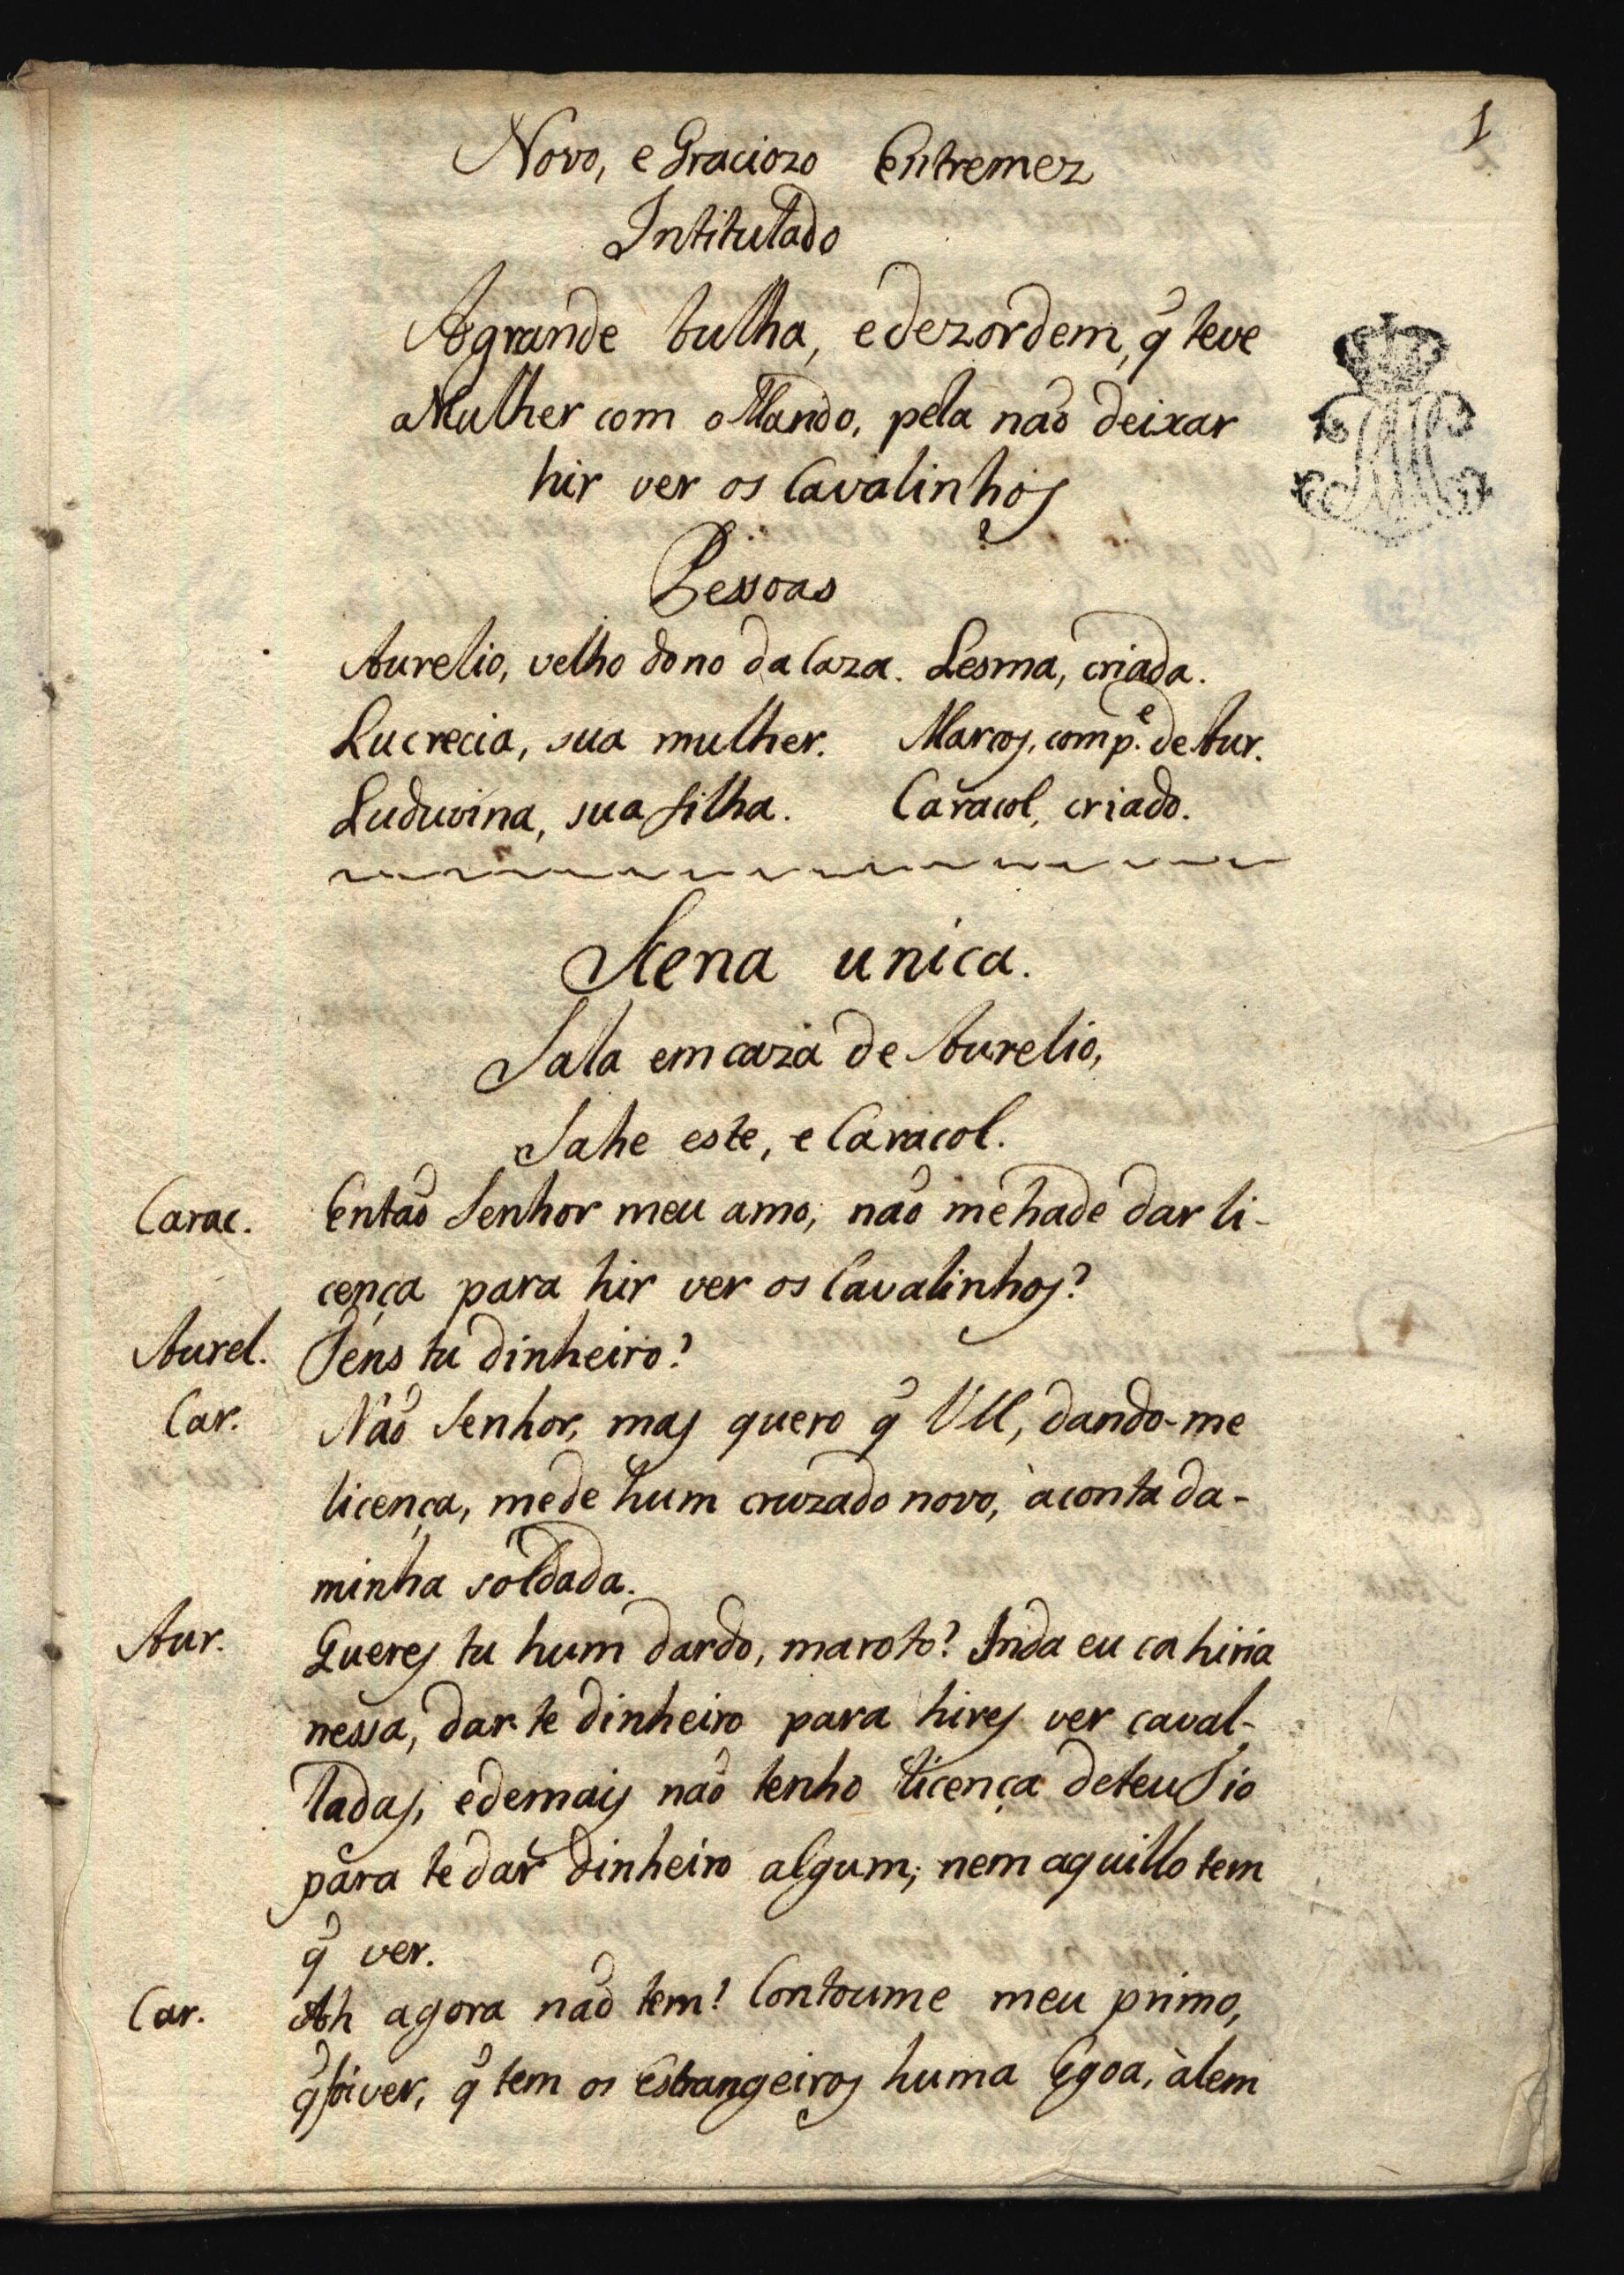 1
Novo, e Graciozo Entremez
Intitulado
A grande bulha, e dezordem, q̃ teve
a Mulher com o Marido, pela naõ deixar
hir ver os Cavalinhos
Pessoas
Aurelio, velho dono da Caza. Lesma, criada.
Lucrecia, sua mulher. Marcos, comp.e de Aur.
Luduvina, sua filha. Caracol, criado.
Scena unica.
Sala em caza de Aurelio,
Sahe este, e Caracol.
Carac. Entaõ Senhor meu amo, naõ me hade dar li-
cença para hir ver os Cavalinhos?
Aurel. Téns tu dinheiro?
Car. Naõ Senhor, mas quero q̃ VM, dando-me
licença, me de hum cruzado novo, à conta da-
minha soldada.
Aur. Queres tu hum dardo, maroto? Inda eu cahiria
nessa, dar te dinheiro para hires ver caval-
ladas, e demais naõ tenho licença de teu Tio
para te dar dinheiro algum; nem aquillo tem
q̃ ver.
Car. Ah agora naõ tem! Contoume meu primo,
q̃ foi ver, q̃ tem os Estrangeiros huma Egoa, àlem